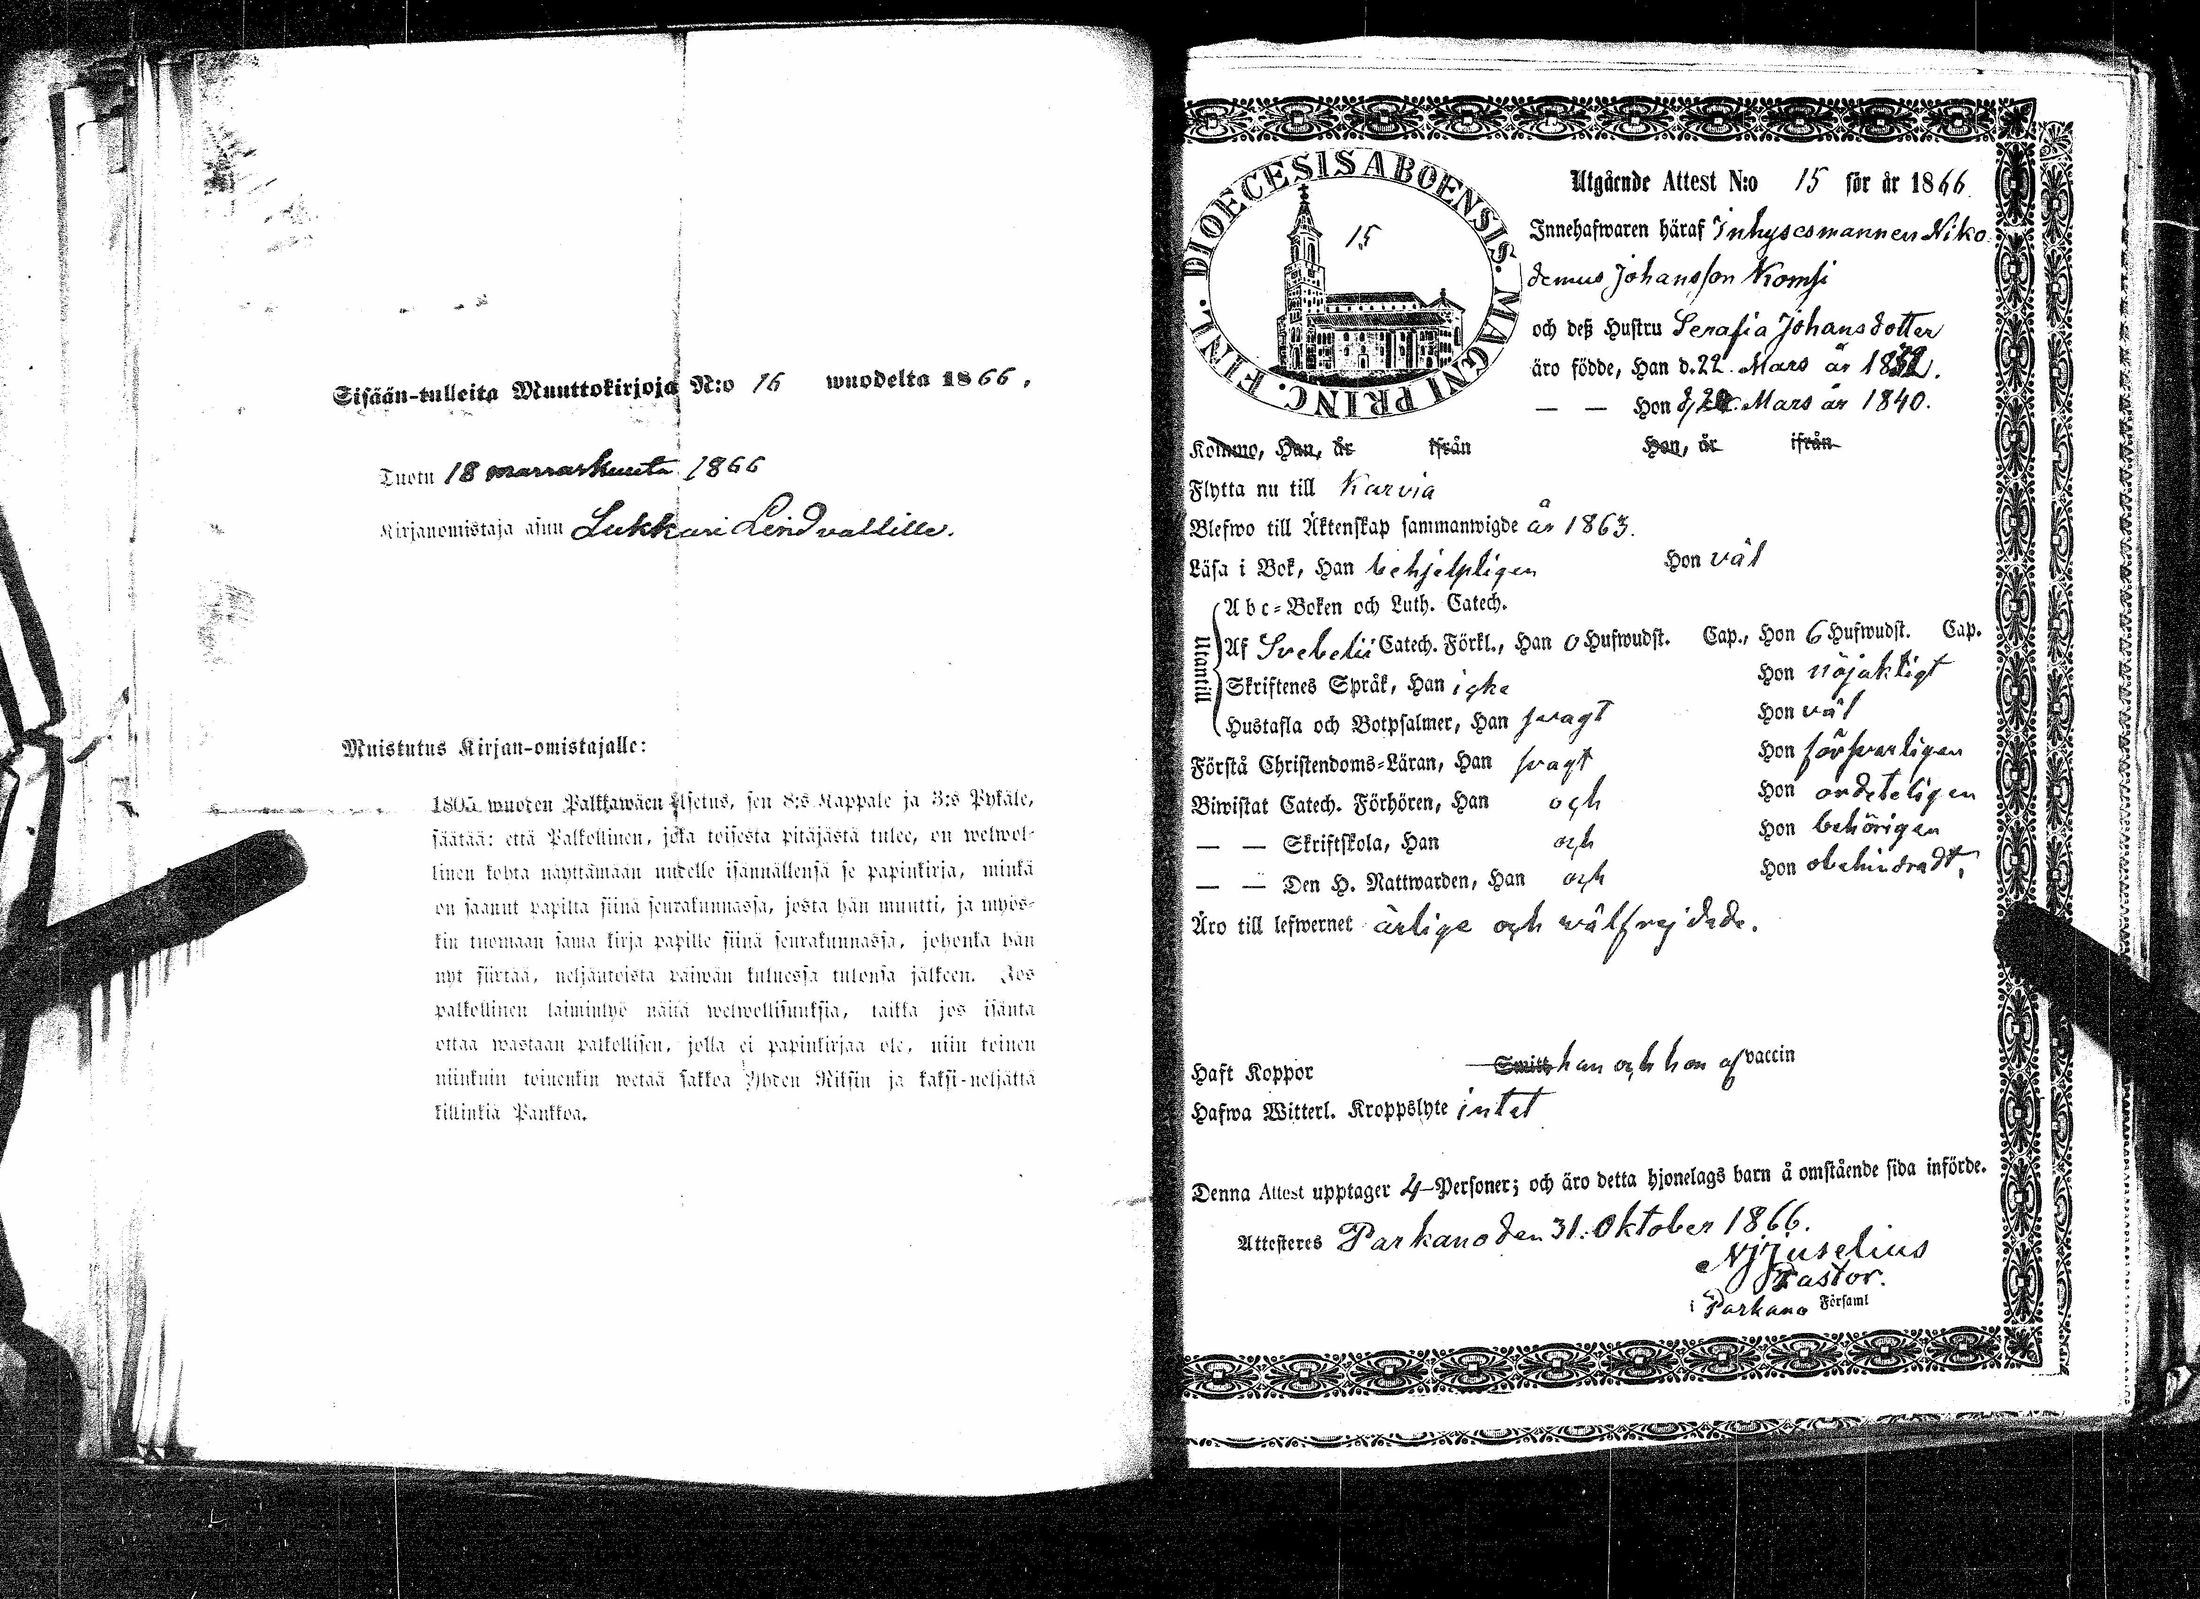 Sisään-tulleita Muuttokirjoja N:o 16 wuodelta 1866.
Tuotu 18 marraskuuta 1866
Kirjanomistaja asuu Lukkari Lindvallille.
Muistutus Kirjan-omistajalle:
1805 wuoden Palkkawäen Asetus, sen 8:s Kappale ja 3:s Pykäle,
säätää: että Palkollinen, joka toisesta pitäjästä tulee, on welwol-
linen kohta näyttämään uudelle isännällensä se papinkirja, minkä
on saanut papilta siinä seurakunnassa, josta hän muutti, ja myös-
kin tuomaan sama kirja papille siinä seurakunnassa, johonka hän
nyt siirtää, neljäntoista päiwän kuluessa tulonsa jälkeen. Jos
palkollinen laiminlyö näitä welwollisuuksia, taikka jos isäntä
ottaa wastaan palkollisen, jolla ei papinkirjaa ole, niin toinen
niinkuin toinenkin wetää sakkoa Yhden Riksin ja kaksi-neljättä
killinkiä Pankkoa.
DIOECESIS ABOENSIS. MAGNI PRINC. FINL.
15
Utgående Attest N:o 15 för år 1866.
Innehafwaren häraf Inhysesmannen Niko
demus Johansson Komsi
och deß Hustru Serafia Johansdotter
äro födde, Han d. 22. Mars år 18
— — Hon d. Mars år 1840.
Kommo, Han, år ifrån Hon, år ifrån
Flytta nu till Karvia
Blefwo till Äktenskap sammanwigde år 1863.
Läsa i Bok, Han behjelpligen Hon väl
Utantill
Abc-Boken och Luth. Catech.
Af Svebelii Catech. Förkl., Han 0 Hufwudst. Cap., Hon 6 Hufwudst. Cap.
Skriftenes Språk, Han icke Hon nöjaktigt
Hustafla och Botpsalmer, Han svagt Hon väl
Förstå Christendoms-Läran, Han svagt Hon försvarligen
Biwistat Catech. Förhören, Han och Hon ordeteligen
— — Skriftskola, Han och Hon behörigen
— — Den H. Nattwarden, Han och Hon obehindradt,
Äro till lefwernet ärlige och välfrejdade.
Haft Koppor Smitt han och hon af vaccin
Hafwa Witterl. Kroppslyte intet
Denna Attest upptager 4 Personer; och äro detta hjonelags barn å omstående sida införde.
Attesteres Parkano den 31. Oktober 1866.
Juselius
Pastor.
i Parkano Församl